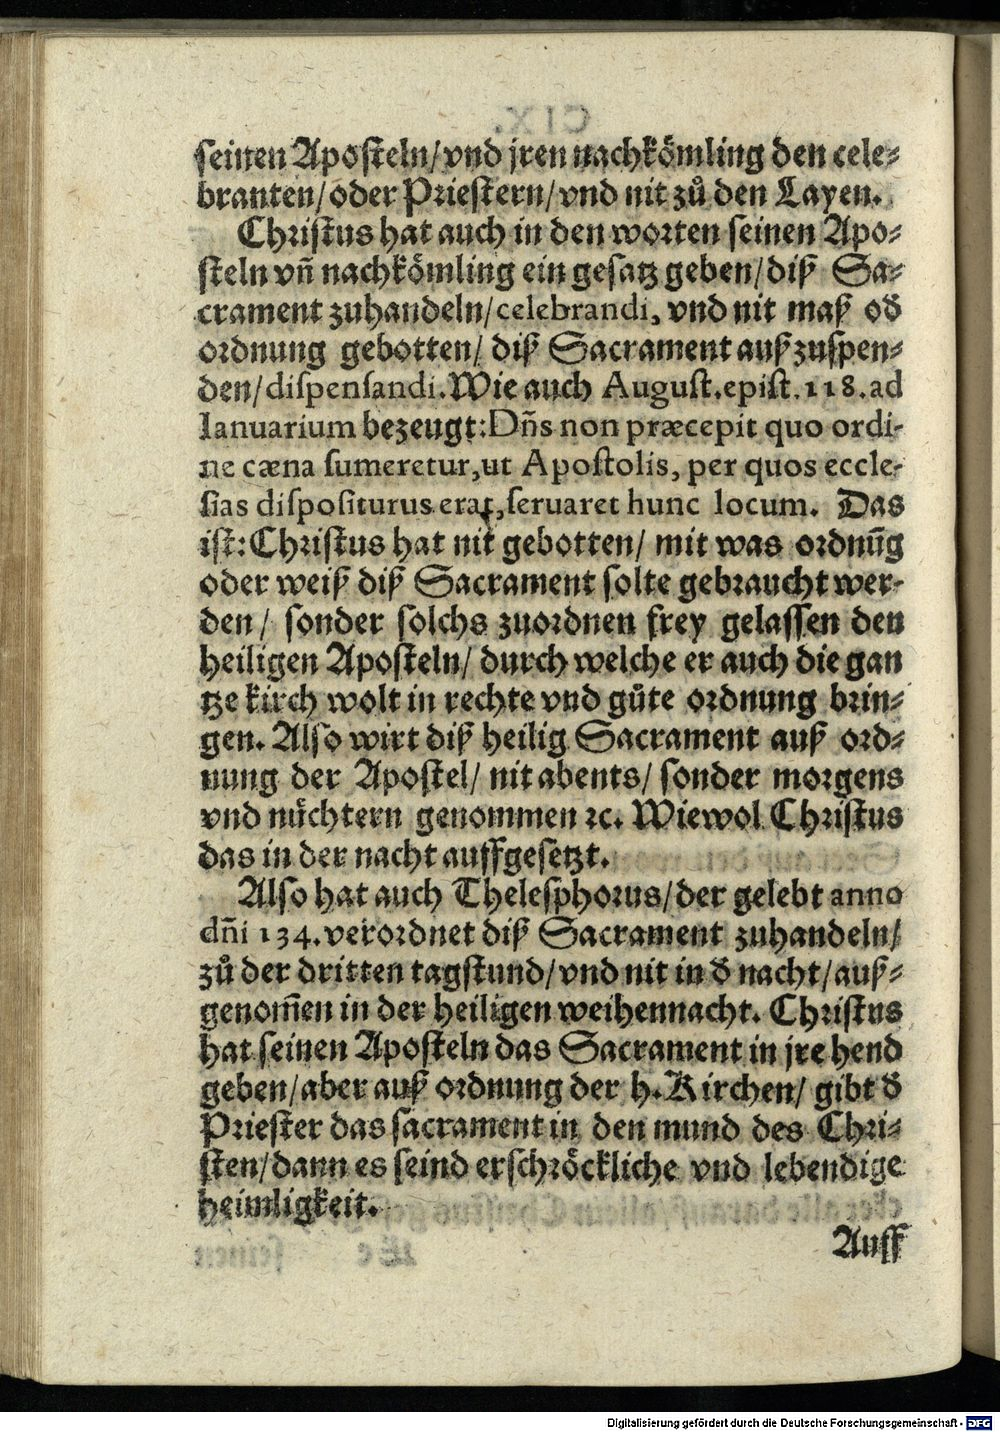 seinen Aposteln/vnd jren nachkömling den cele-
branten/oder Priestern/vnd nit zů den Layen.
Christus hat auch in den worten seinen Apo-
steln vñ nachkömling ein gesatz geben/diß Sa-
crament zuhandeln/celebrandi, vnd nit maß oď
ordnung gebotten/ diß Sacrament auß zuspen-
den/dispensandi. Wie auch August. epist. 118. ad
Ianuarium bezeugt: Dñs non præcepit quo ordi-
ne cæna sumeretur, ut Apostolis, per quos eccle-
sias dispositurus erat, seruaret hunc locum. Das
ist: Christus hat nit gebotten/ mit was ordnūg
oder weiß diß Sacrament solte gebraucht wer-
den/ sonder solchs zuordnen frey gelassen den
heiligen Aposteln/ durch welche er auch die gan
tze kirch wolt in rechte vnd gůte ordnung brin-
gen. Also wirt diß heilig Sacrament auß ord-
nung der Apostel/ nit abents/ sonder morgens
vnd nůchtern genommen ꝛc. Wiewol Christus
das in der nacht auffgesetzt.
Also hat auch Thelesphorus/der gelebt anno
dñi 134. verordnet diß Sacrament zuhandeln/
zů der dritten tagstund/vnd nit in ď nacht/auß-
genom̄en in der heiligen weihennacht. Christus
hat seinen Aposteln das Sacrament in jre hend
geben/aber auß ordnung der h. Kirchen/ gibt ď
Priester das sacrament in den mund des Chri-
sten/dann es seind erschröckliche vnd lebendige
heimligkeit.
Auff
Digitalisierung gefördert durch die Deutsche Forschungsgemeinschaft - DFG